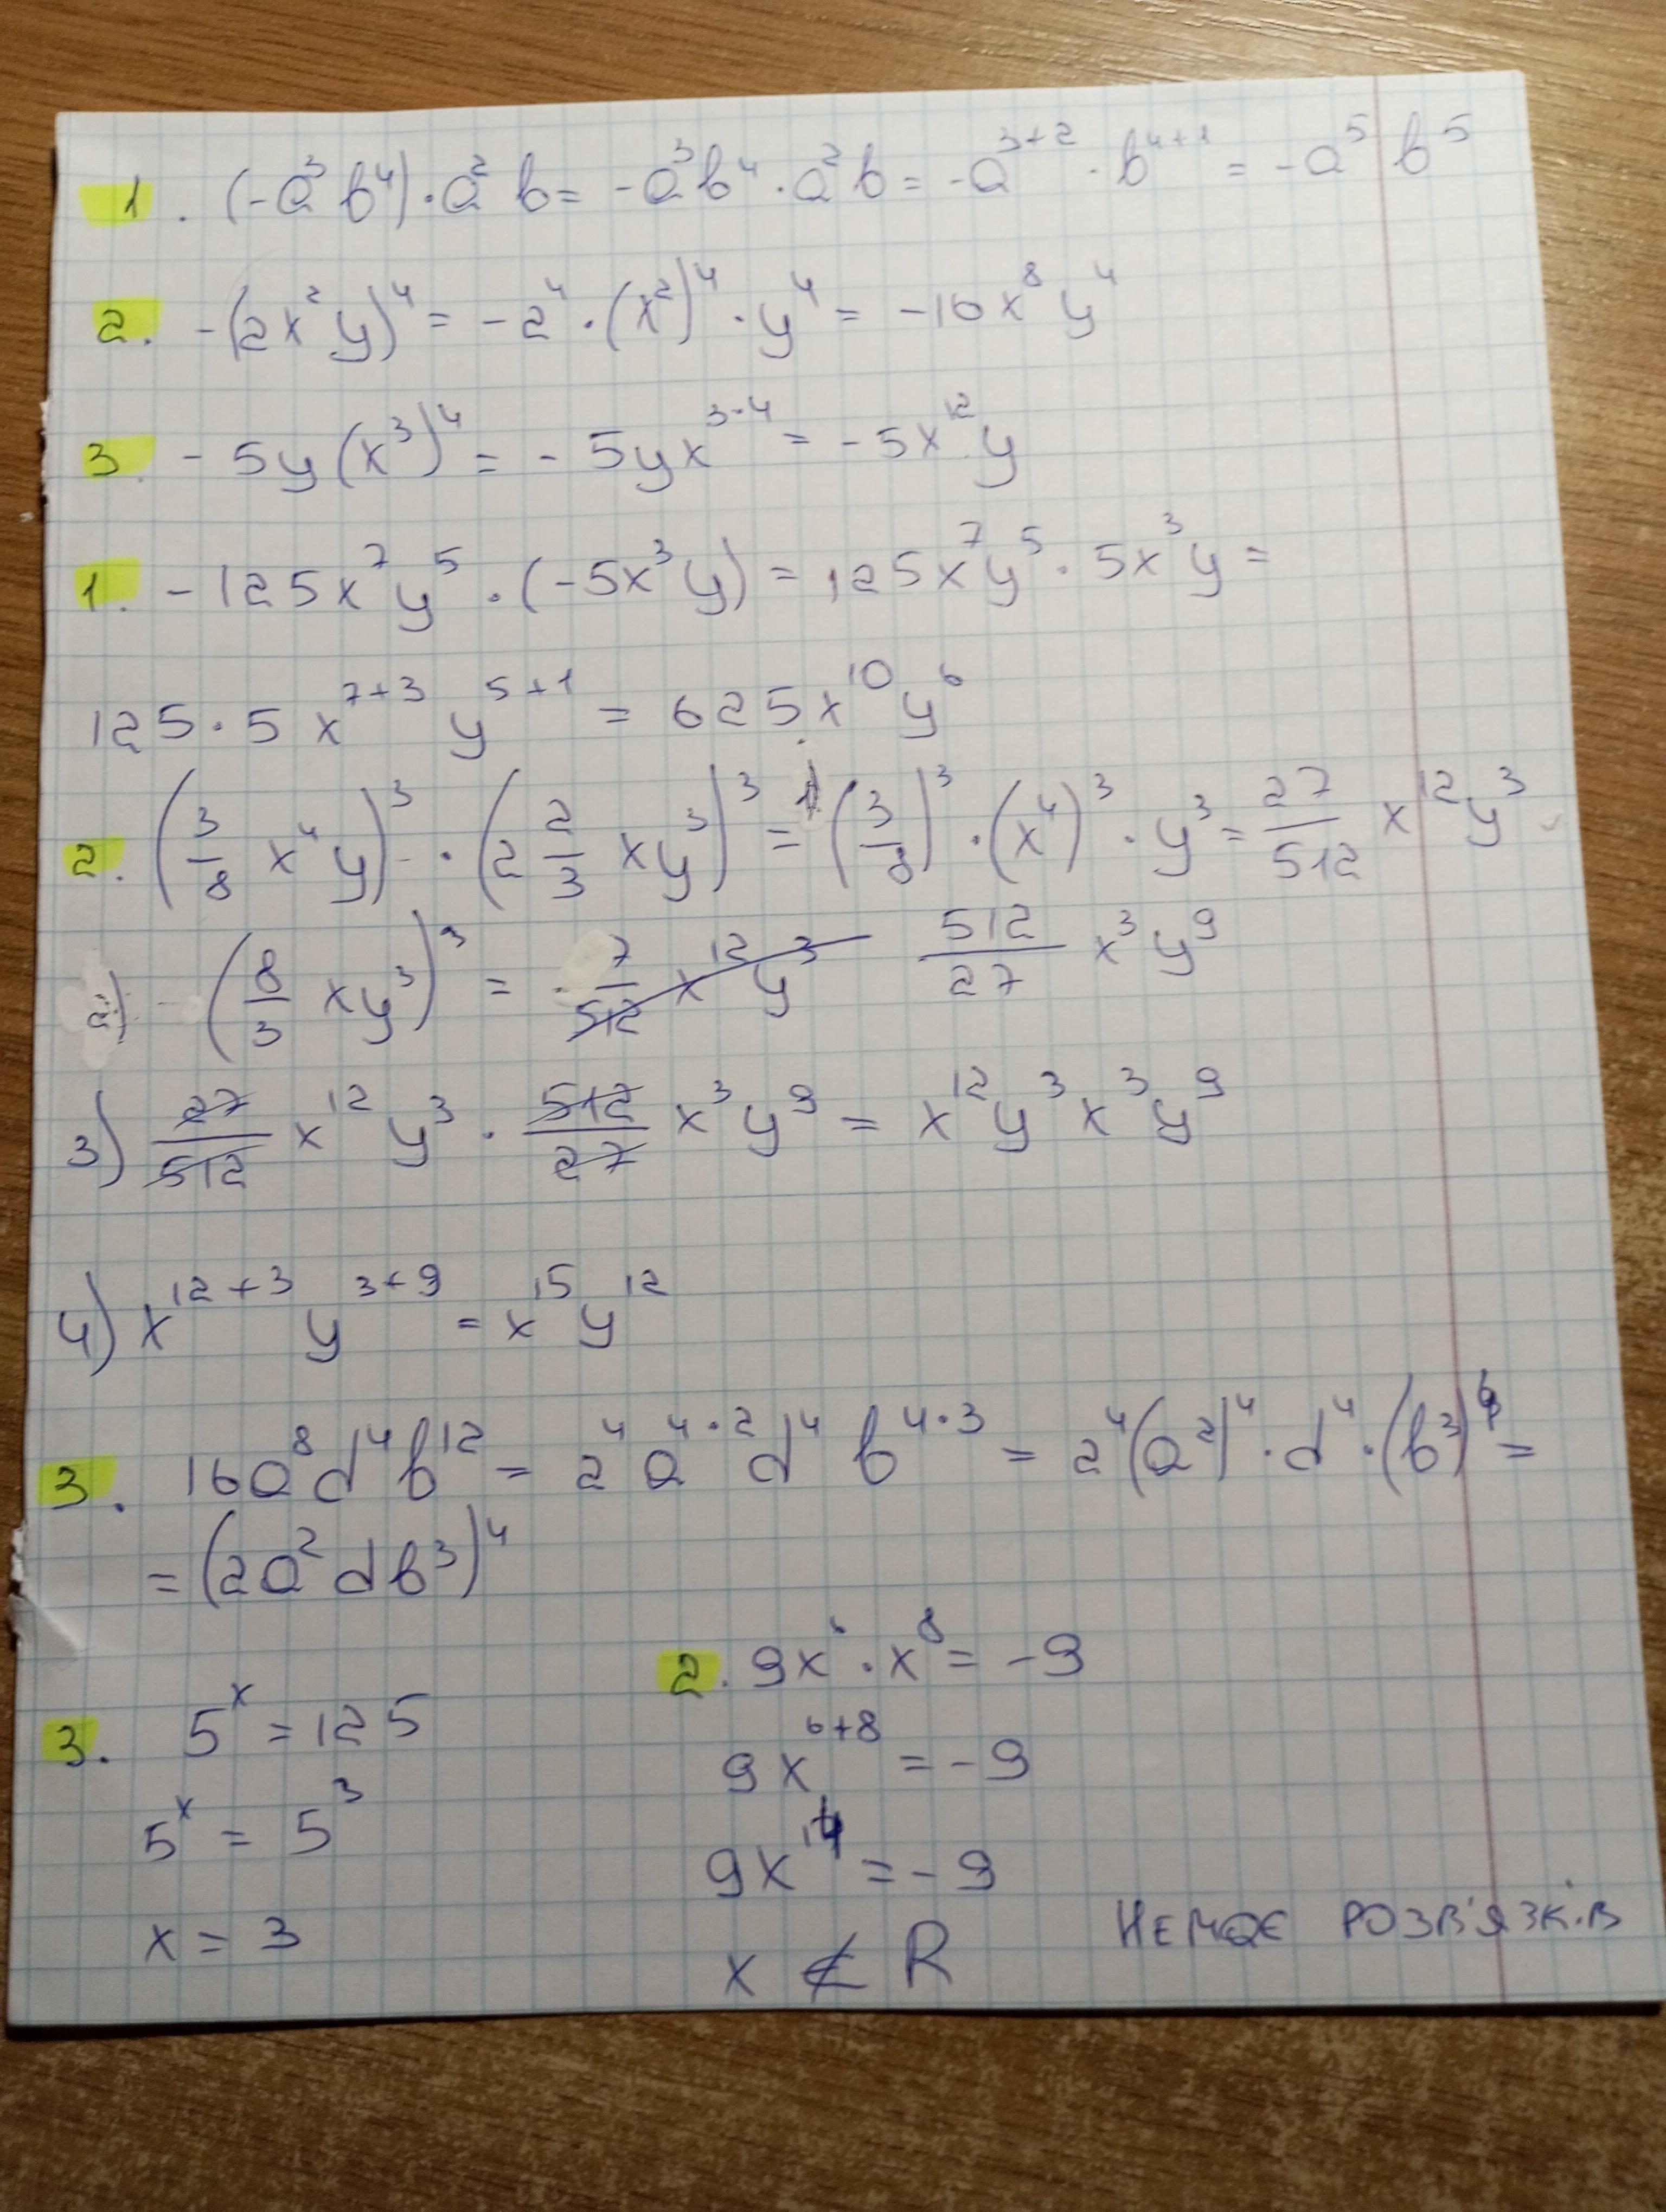 1. (-a³b⁴)·a²b = -a³b⁴·a²b = -a³⁺²·b⁴⁺¹ = -a⁵b⁵
2. -(2x²y)⁴ = -2⁴·(x²)⁴·y⁴ = -16x⁸y⁴
3. -5y(x³)⁴ = -5yx³·⁴ = -5x¹²y
1. -125x⁷y⁵·(-5x³y) = 125x⁷y⁵·5x³y =
125·5x⁷⁺³y⁵⁺¹ = 625x¹⁰y⁶
2. (3/8 x⁴y)³·(2 2/3 xy³)³ = 1) (3/8)³·(x⁴)³·y³ = 27/512 x¹²y³
2) (8/3 xy³)³ = 512/27 x³y⁹
3) 27/512 x¹²y³·512/27 x³y⁹ = x¹²y³x³y⁹
4) x¹²⁺³y³⁺⁹ = x¹⁵y¹²
3. 16a⁸d⁴b¹² = 2⁴a⁴·²d⁴b⁴·³ = 2⁴(a²)⁴·d⁴·(b³)⁴ =
= (2a²db³)⁴
3. 5ˣ = 125
5ˣ = 5³
x = 3
2. 9x⁶·x⁸ = -9
9x⁶⁺⁸ = -9
9x¹⁴ = -9
x ∉ R
Немає розв'язків